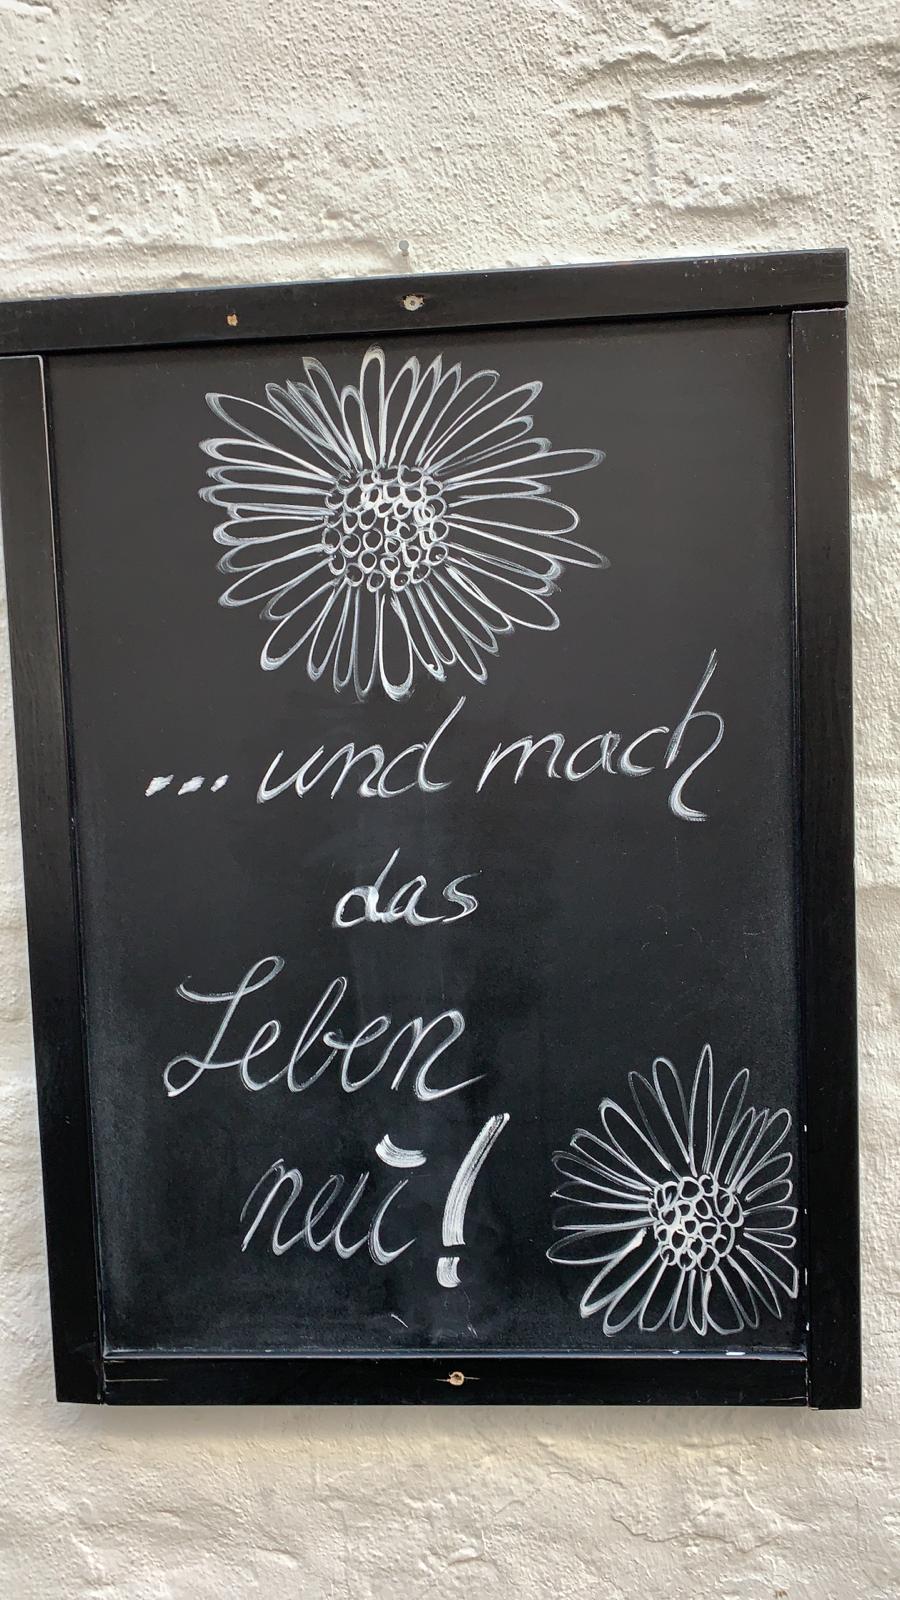 ... und mach
das
Leben
neu!